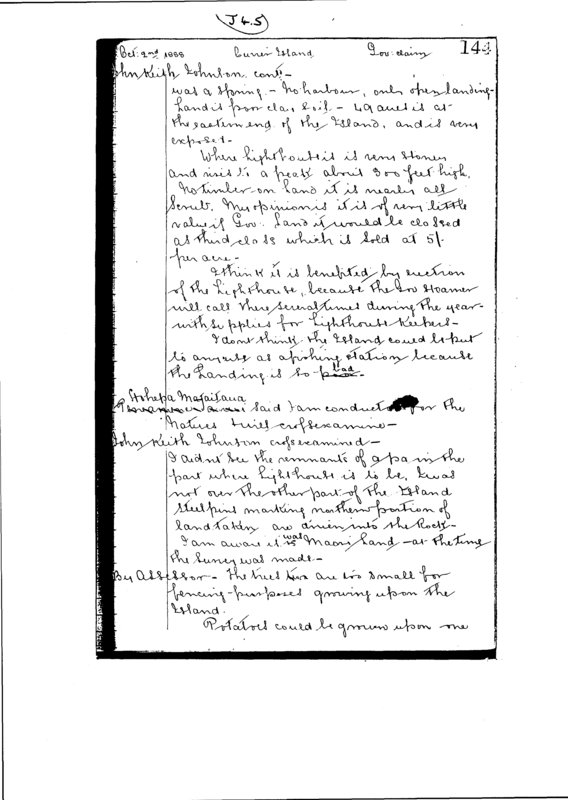 J4.5
Oct: 2nd 1888 Cuvier Island Gov: claim 143
John Keith Johnson cont:-
was a spring. - No harbour, only open landing-
Land is poor clay soil - 49 acres is at
the eastern end of the Island, and is very
exposed -
Where lighthouse is is very stoney
and rises to a peak about 300 feet high.
No timber on land it is nearly all
Scrub. My opinion is it is of very little
value if Gov: Land it would be classed
as third class which is sold at 5/-
per acre -
I think it is benefited by erection
of the Lighthouse, because the Gov Steamer
will call there several times during the year -
with supplies for Lighthouse Keepers -
I dont think the Island could be put
to any use as a fishing station because
the Landing is so bad -
Hohepa Mataitaua
said I am conductor for the
Natives & will cross examine -
John Keith Johnson cross examined -
I didnt see the remnants of a pa in the
part where Lighthouse is to be, I was
not over the other part of the Island
Steel pins marking northern portion of
land taken are driven into the Rock -
I am aware it was Maori Land - at the time
the Survey was made -
By Assessor - The trees are too small for
fencing purposes growing upon the
Island.
Potatoes could be grown upon one